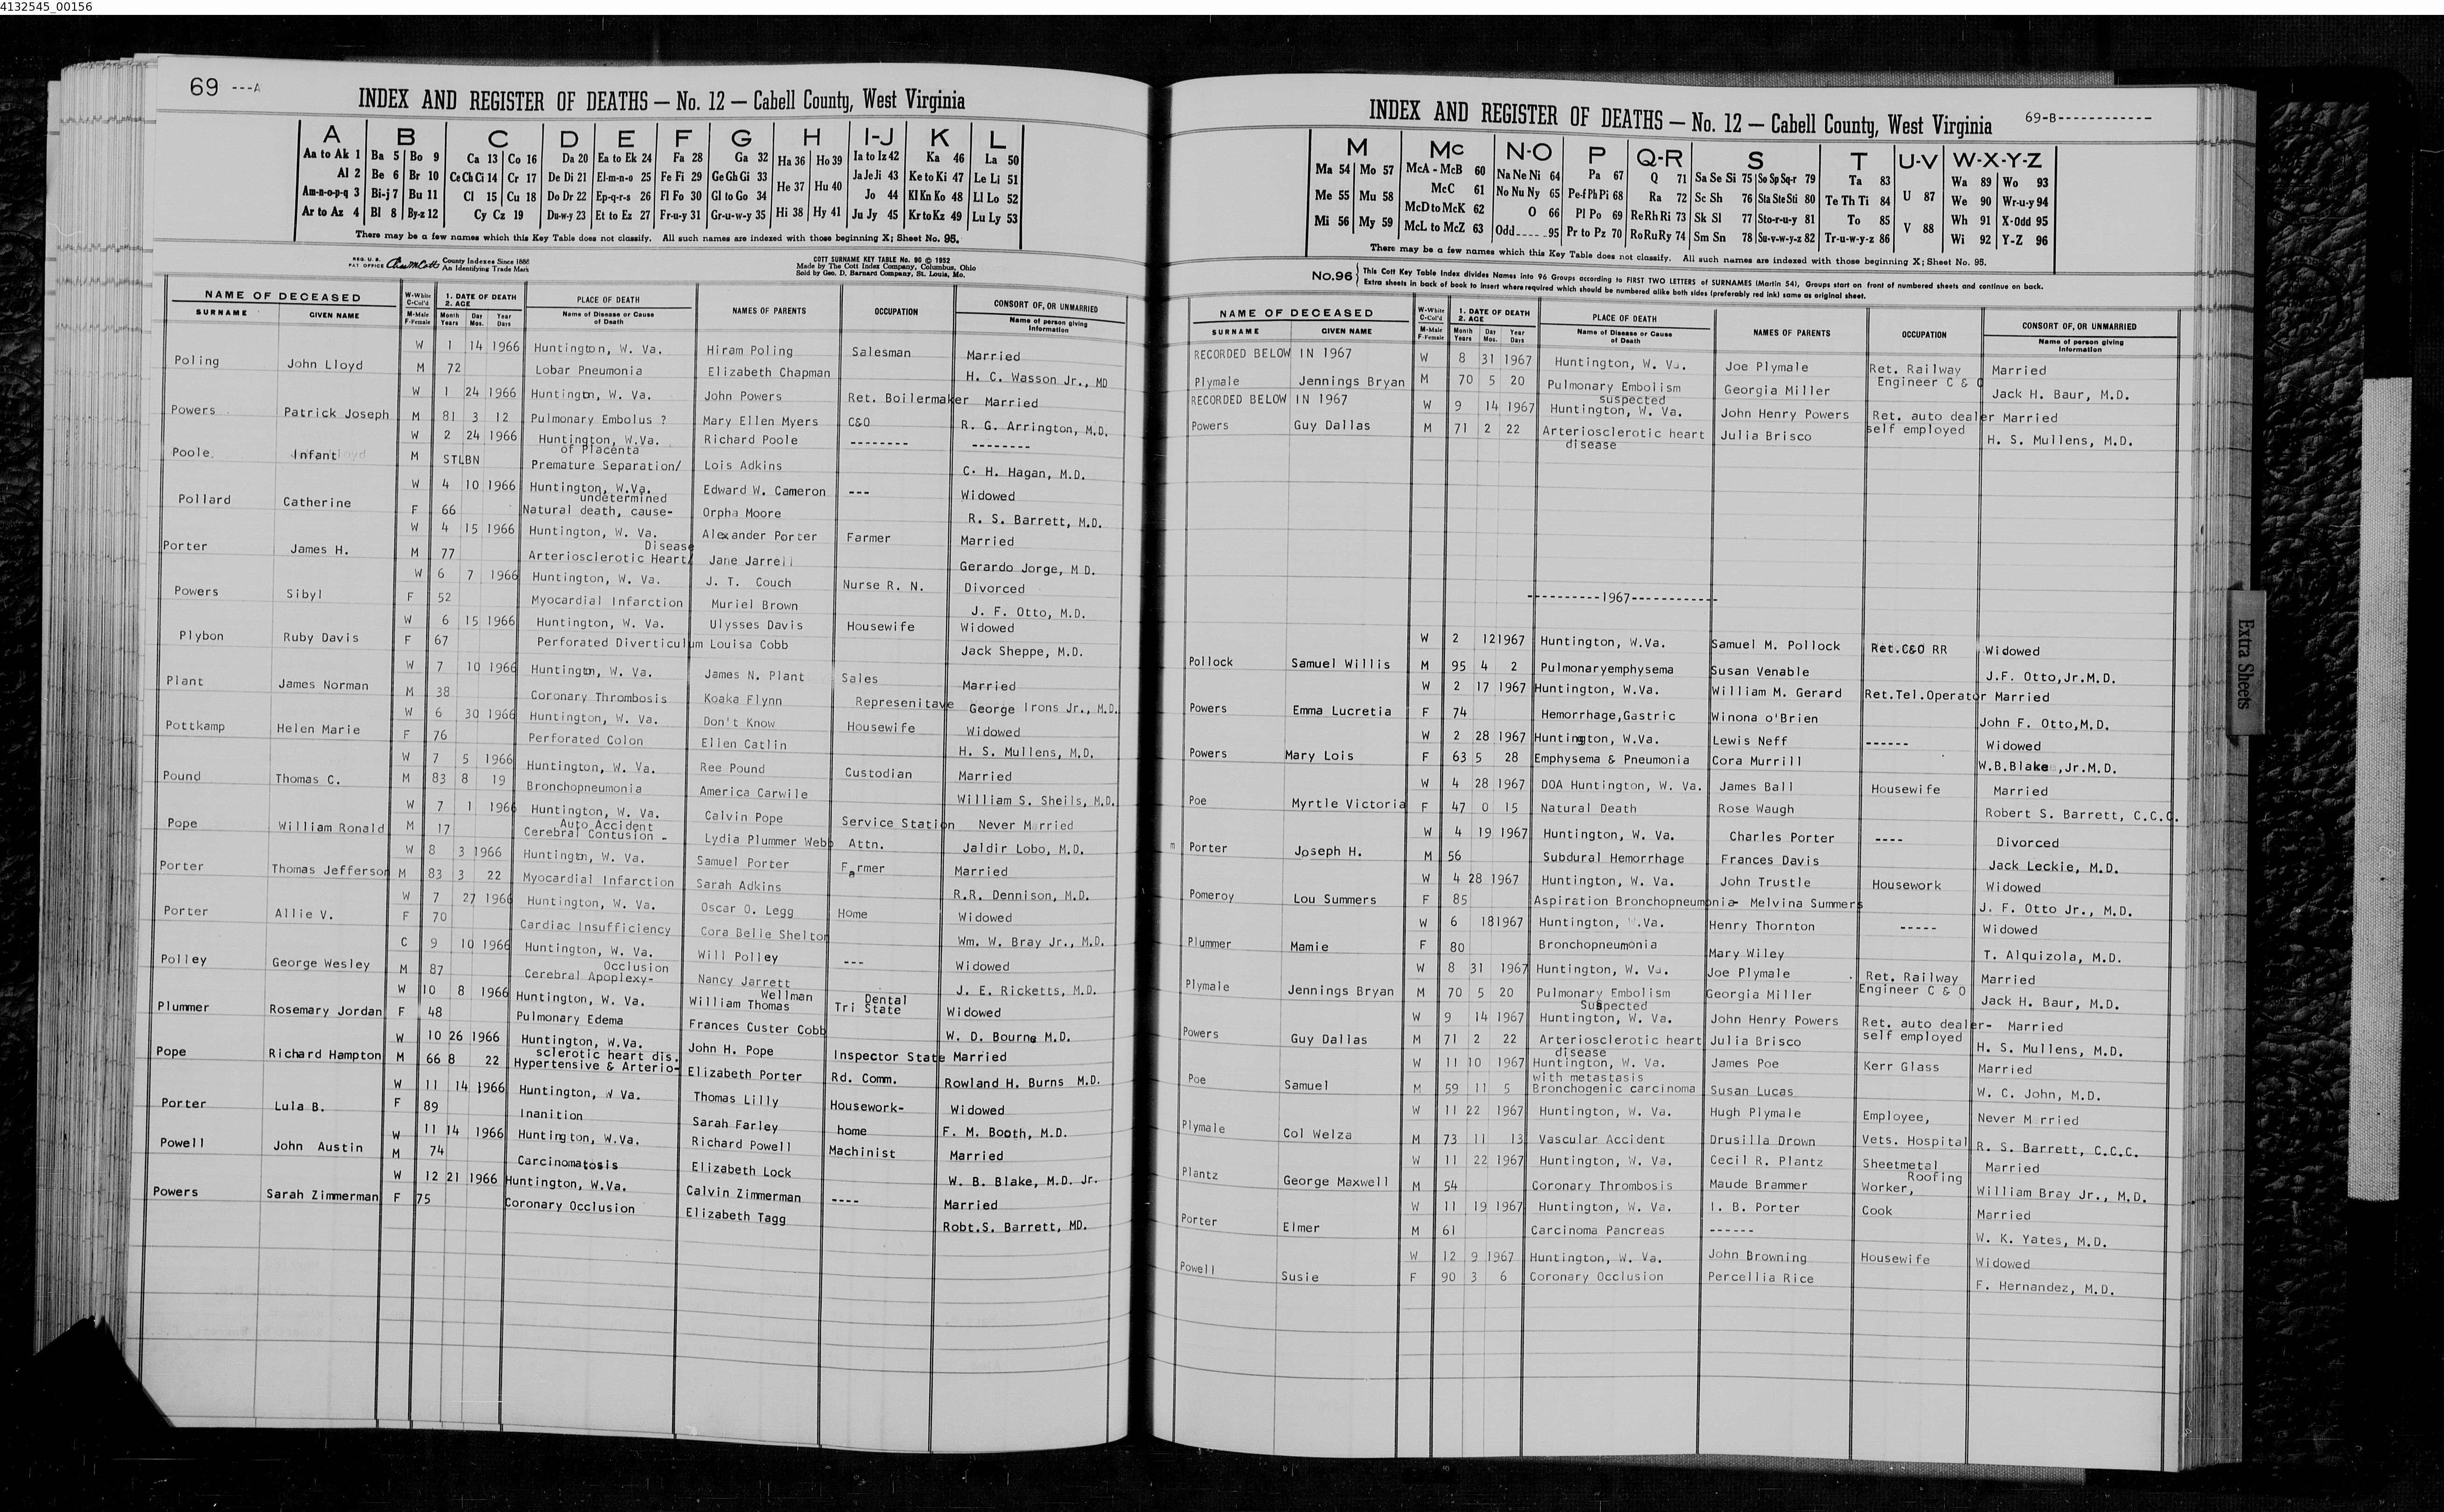 4132545_00156
69 ---A
INDEX AND REGISTER OF DEATHS — No. 12 — Cabell County, West Virginia
A B C D E F G H I-J K L
Aa to Ak 1 Ba 5 Bo 9 Ca 13 Co 16 Da 20 Ea to Ek 24 Fa 28 Ga 32 Ha 36 Ho 39 Ia to Iz 42 Ka 46 La 50
Al 2 Be 6 Br 10 Ce Ch Ci 14 Cr 17 De Di 21 El-m-n-o 25 Fe Fi 29 Ge Gh Gi 33 He 37 Hu 40 Ja Je Ji 43 Ke to Ki 47 Le Li 51
Am-n-o-p-q 3 Bi-j 7 Bu 11 Cl 15 Cu 18 Do Dr 22 Ep-q-r-s 26 Fl Fo 30 Gl to Go 34 Jo 44 Kl Kn Ko 48 Ll Lo 52
Ar to Az 4 Bl 8 By-z 12 Cy Cz 19 Du-w-y 23 Et to Ez 27 Fr-u-y 31 Gr-u-w-y 35 Hi 38 Hy 41 Ju Jy 45 Kr to Kz 49 Lu Ly 53
There may be a few names which this Key Table does not classify. All such names are indexed with those beginning X; Sheet No. 95.
REG. U. S. PAT. OFFICE County Indexes Since 1888 An Identifying Trade Mark
COTT SURNAME KEY TABLE No. 96 © 1952
Made by The Cott Index Company, Columbus, Ohio
Sold by Geo. D. Barnard Company, St. Louis, Mo.
NAME OF DECEASED W-White C-Col'd 1. DATE OF DEATH 2. AGE PLACE OF DEATH NAMES OF PARENTS OCCUPATION CONSORT OF, OR UNMARRIED
SURNAME GIVEN NAME M-Male F-Female Month Years Day Mos. Year Days Name of Disease or Cause of Death Name of person giving Information
W 1 14 1966 Huntington, W. Va. Hiram Poling Salesman Married
Poling John Lloyd M 72 Lobar Pneumonia Elizabeth Chapman H. C. Wasson Jr., MD
W 1 24 1966 Huntingtn, W. Va. John Powers Ret. Boilermaker Married
Powers Patrick Joseph M 81 3 12 Pulmonary Embolus ? Mary Ellen Myers C&O R. G. Arrington, M.D.
W 2 24 1966 Huntington, W.Va. Richard Poole -------- --------
of Placenta
Poole Infant M STLBN Premature Separation/ Lois Adkins C. H. Hagan, M.D.
W 4 10 1966 Huntington, W.Va. Edward W. Cameron --- Widowed
undetermined
Pollard Catherine F 66 Natural death, cause- Orpha Moore R. S. Barrett, M.D.
W 4 15 1966 Huntington, W. Va. Alexander Porter Farmer Married
Disease
Porter James H. M 77 Arteriosclerotic Heart/ Jane Jarrell Gerardo Jorge, M D.
W 6 7 1966 Huntington, W. Va. J. T. Couch Nurse R. N. Divorced
Powers Sibyl F 52 Myocardial Infarction Muriel Brown J. F. Otto, M.D.
W 6 15 1966 Huntington, W. Va. Ulysses Davis Housewife Widowed
Plybon Ruby Davis F 67 Perforated Diverticulum Louisa Cobb Jack Sheppe, M.D.
W 7 10 1966 Huntingtn, W. Va. James N. Plant Sales Married
Plant James Norman M 38 Coronary Thrombosis Koaka Flynn Represenitave George Irons Jr., M.D.
W 6 30 1966 Huntington, W. Va. Don't Know Housewife Widowed
Pottkamp Helen Marie F 76 Perforated Colon Ellen Catlin H. S. Mullens, M.D.
W 7 5 1966 Huntington, W. Va. Ree Pound Custodian Married
Pound Thomas C. M 83 8 19 Bronchopneumonia America Carwile William S. Sheils, M.D.
W 7 1 1966 Huntington, W. Va. Calvin Pope Service Station Never Married
Auto Accident
Pope William Ronald M 17 Cerebral Contusion - Lydia Plummer Webb Attn. Jaldir Lobo, M.D.
W 8 3 1966 Huntingtn, W. Va. Samuel Porter Farmer Married
Porter Thomas Jefferson M 83 3 22 Myocardial Infarction Sarah Adkins R.R. Dennison, M.D.
W 7 27 1966 Huntington, W. Va. Oscar O. Legg Home Widowed
Porter Allie V. F 70 Cardiac Insufficiency Cora Belle Shelton Wm. W. Bray Jr., M.D.
C 9 10 1966 Huntington, W. Va. Will Polley --- Widowed
Occlusion
Polley George Wesley M 87 Cerebral Apoplexy- Nancy Jarrett J. E. Ricketts, M.D.
Wellman Dental
W 10 8 1966 Huntington, W. Va. William Thomas Tri State Widowed
Plummer Rosemary Jordan F 48 Pulmonary Edema Frances Custer Cobb W. D. Bourne M.D.
W 10 26 1966 Huntington, W.Va. John H. Pope Inspector State Married
sclerotic heart dis.
Pope Richard Hampton M 66 8 22 Hypertensive & Arterio- Elizabeth Porter Rd. Comm. Rowland H. Burns M.D.
W 11 14 1966 Huntington, W Va. Thomas Lilly Housework- Widowed
Porter Lula B. F 89 Inanition Sarah Farley home F. M. Booth, M.D.
W 11 14 1966 Huntington, W.Va. Richard Powell Machinist Married
Powell John Austin M 74 Carcinomatosis Elizabeth Lock W. B. Blake, M.D. Jr.
W 12 21 1966 Huntington, W.Va. Calvin Zimmerman ---- Married
Powers Sarah Zimmerman F 75 Coronary Occlusion Elizabeth Tagg Robt.S. Barrett, MD.
INDEX AND REGISTER OF DEATHS — No. 12 — Cabell County, West Virginia
69-B------------
M Mc N-O P Q-R S T U-V W-X-Y-Z
Ma 54 Mo 57 McA - McB 60 Na Ne Ni 64 Pa 67 Q 71 Sa Se Si 75 So Sp Sq-r 79 Ta 83 U 87 Wa 89 Wo 93
Me 55 Mu 58 McC 61 No Nu Ny 65 Pe-f Ph Pi 68 Ra 72 Sc Sh 76 Sta Ste Sti 80 Te Th Ti 84 We 90 Wr-u-y 94
McD to McK 62 O 66 Pl Po 69 Re Rh Ri 73 Sk Sl 77 Sto-r-u-y 81 To 85 V 88 Wh 91 X-Odd 95
Mi 56 My 59 McL to McZ 63 Odd-----95 Pr to Pz 70 Ro Ru Ry 74 Sm Sn 78 Su-v-w-y-z 82 Tr-u-w-y-z 86 Wi 92 Y-Z 96
There may be a few names which this Key Table does not classify. All such names are indexed with those beginning X; Sheet No. 95.
No.96 This Cott Key Table Index divides Names into 96 Groups according to FIRST TWO LETTERS of SURNAMES (Martin 54), Groups start on front of numbered sheets and continue on back.
Extra sheets in back of book to insert where required which should be numbered alike both sides (preferably red ink) same as original sheet.
NAME OF DECEASED W-White C-Col'd 1. DATE OF DEATH 2. AGE PLACE OF DEATH NAMES OF PARENTS OCCUPATION CONSORT OF, OR UNMARRIED
SURNAME GIVEN NAME M-Male F-Female Month Years Day Mos. Year Days Name of Disease or Cause of Death Name of person giving Information
RECORDED BELOW IN 1967 W 8 31 1967 Huntington, W. Va. Joe Plymale Ret. Railway Married
Plymale Jennings Bryan M 70 5 20 Pulmonary Embolism Georgia Miller Engineer C & O Jack H. Baur, M.D.
suspected
RECORDED BELOW IN 1967 W 9 14 1967 Huntington, W. Va. John Henry Powers Ret. auto dealer Married
Powers Guy Dallas M 71 2 22 Arteriosclerotic heart Julia Brisco self employed H. S. Mullens, M.D.
disease
----------1967------------
W 2 12 1967 Huntington, W.Va. Samuel M. Pollock Ret.C&O RR Widowed
Pollock Samuel Willis M 95 4 2 Pulmonaryemphysema Susan Venable J.F. Otto,Jr.M.D.
W 2 17 1967 Huntington, W.Va. William M. Gerard Ret.Tel.Operator Married
Powers Emma Lucretia F 74 Hemorrhage,Gastric Winona o'Brien John F. Otto,M.D.
W 2 28 1967 Huntington, W.Va. Lewis Neff ------ Widowed
Powers Mary Lois F 63 5 28 Emphysema & Pneumonia Cora Murrill W.B.Blake ,Jr.M.D.
W 4 28 1967 DOA Huntington, W. Va. James Ball Housewife Married
Poe Myrtle Victoria F 47 0 15 Natural Death Rose Waugh Robert S. Barrett, C.C.C.
W 4 19 1967 Huntington, W. Va. Charles Porter ---- Divorced
m Porter Joseph H. M 56 Subdural Hemorrhage Frances Davis Jack Leckie, M.D.
W 4 28 1967 Huntington, W. Va. John Trustle Housework Widowed
Pomeroy Lou Summers F 85 Aspiration Bronchopneumonia- Melvina Summers J. F. Otto Jr., M.D.
W 6 18 1967 Huntington, W.Va. Henry Thornton ----- Widowed
Plummer Mamie F 80 Bronchopneumonia Mary Wiley T. Alquizola, M.D.
W 8 31 1967 Huntington, W. Va. Joe Plymale Ret. Railway Married
Plymale Jennings Bryan M 70 5 20 Pulmonary Embolism Georgia Miller Engineer C & O Jack H. Baur, M.D.
Suspected
W 9 14 1967 Huntington, W. Va. John Henry Powers Ret. auto dealer- Married
Powers Guy Dallas M 71 2 22 Arteriosclerotic heart Julia Brisco self employed H. S. Mullens, M.D.
disease
W 11 10 1967 Huntington, W. Va. James Poe Kerr Glass Married
with metastasis
Poe Samuel M 59 11 5 Bronchogenic carcinoma Susan Lucas W. C. John, M.D.
W 11 22 1967 Huntington, W. Va. Hugh Plymale Employee, Never M rried
Plymale Col Welza M 73 11 13 Vascular Accident Drusilla Drown Vets. Hospital R. S. Barrett, C.C.C.
W 11 22 1967 Huntington, W. Va. Cecil R. Plantz Sheetmetal Married
Roofing
Plantz George Maxwell M 54 Coronary Thrombosis Maude Brammer Worker, William Bray Jr., M.D.
W 11 19 1967 Huntington, W. Va. I. B. Porter Cook Married
Porter Elmer M 61 Carcinoma Pancreas ------ W. K. Yates, M.D.
W 12 9 1967 Huntington, W. Va. John Browning Housewife Widowed
Powell Susie F 90 3 6 Coronary Occlusion Percellia Rice F. Hernandez, M.D.
Extra Sheets